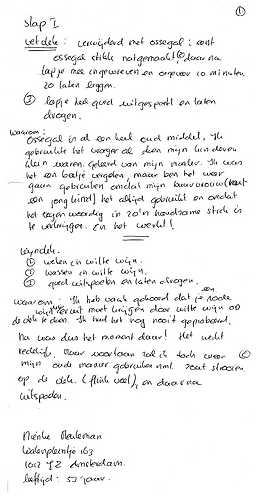 ①
Slap I
vet vlek : verwijderd met ossegal : eerst
ossegal stukje natgemaakt daarna
lapje mee ingewreven en ongeveer 10 minuten
zo laten liggen.
② lapje heel goed uitgespoeld en laten
drogen.
Waarom :
Ossegal is al een heel oud middel. Ik
gebruikte het vroeger al toen mijn kinderen
klein waren. Geleerd van mijn moeder. Ik was
het een beetje vergeten, maar ben het weer
gaan gebruiken omdat mijn buurvrouw (heeft
een jong kind) het altijd gebruikt en omdat
het tegenwoordig in zo'n handzame stick is
te verkrijgen. En het werkt!
Wijnvlek.
① weken in witte wijn.
② wassen in witte wijn.
③ goed uitspoelen en laten drogen.
waarom : Ik heb vaak gehoord dat je rode
wijn eruit moet krijgen door witte wijn op
de vlek te doen. Ik had het nog nooit geprobeerd.
Nu was dus het moment daar! Het werkt
redelijk, maar voortaan zal ik toch weer
mijn oude manier gebruiken nml zout strooien
op de vlek. (flink veel), en daarna
uitspoelen.
1012 YZ Amsterdam.
leeftijd : 52 jaar.